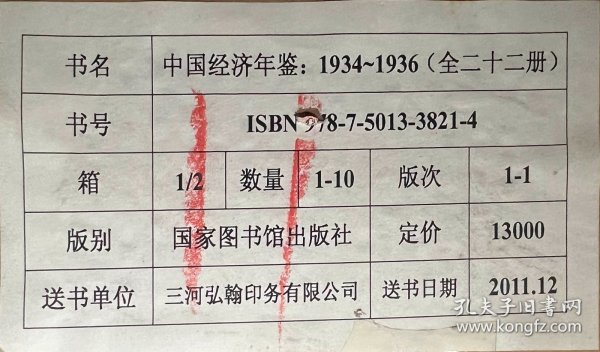 书名 中国经济年鉴：1934~1936（全二十二册）
书号 ISBN 978-7-5013-3821-4
箱 1/2 数量 1-10 版次 1-1
版别 国家图书馆出版社 定价 13000
送书单位 三河弘翰印务有限公司 送书日期 2011.12
孔夫子旧书网
www.kongfz.com